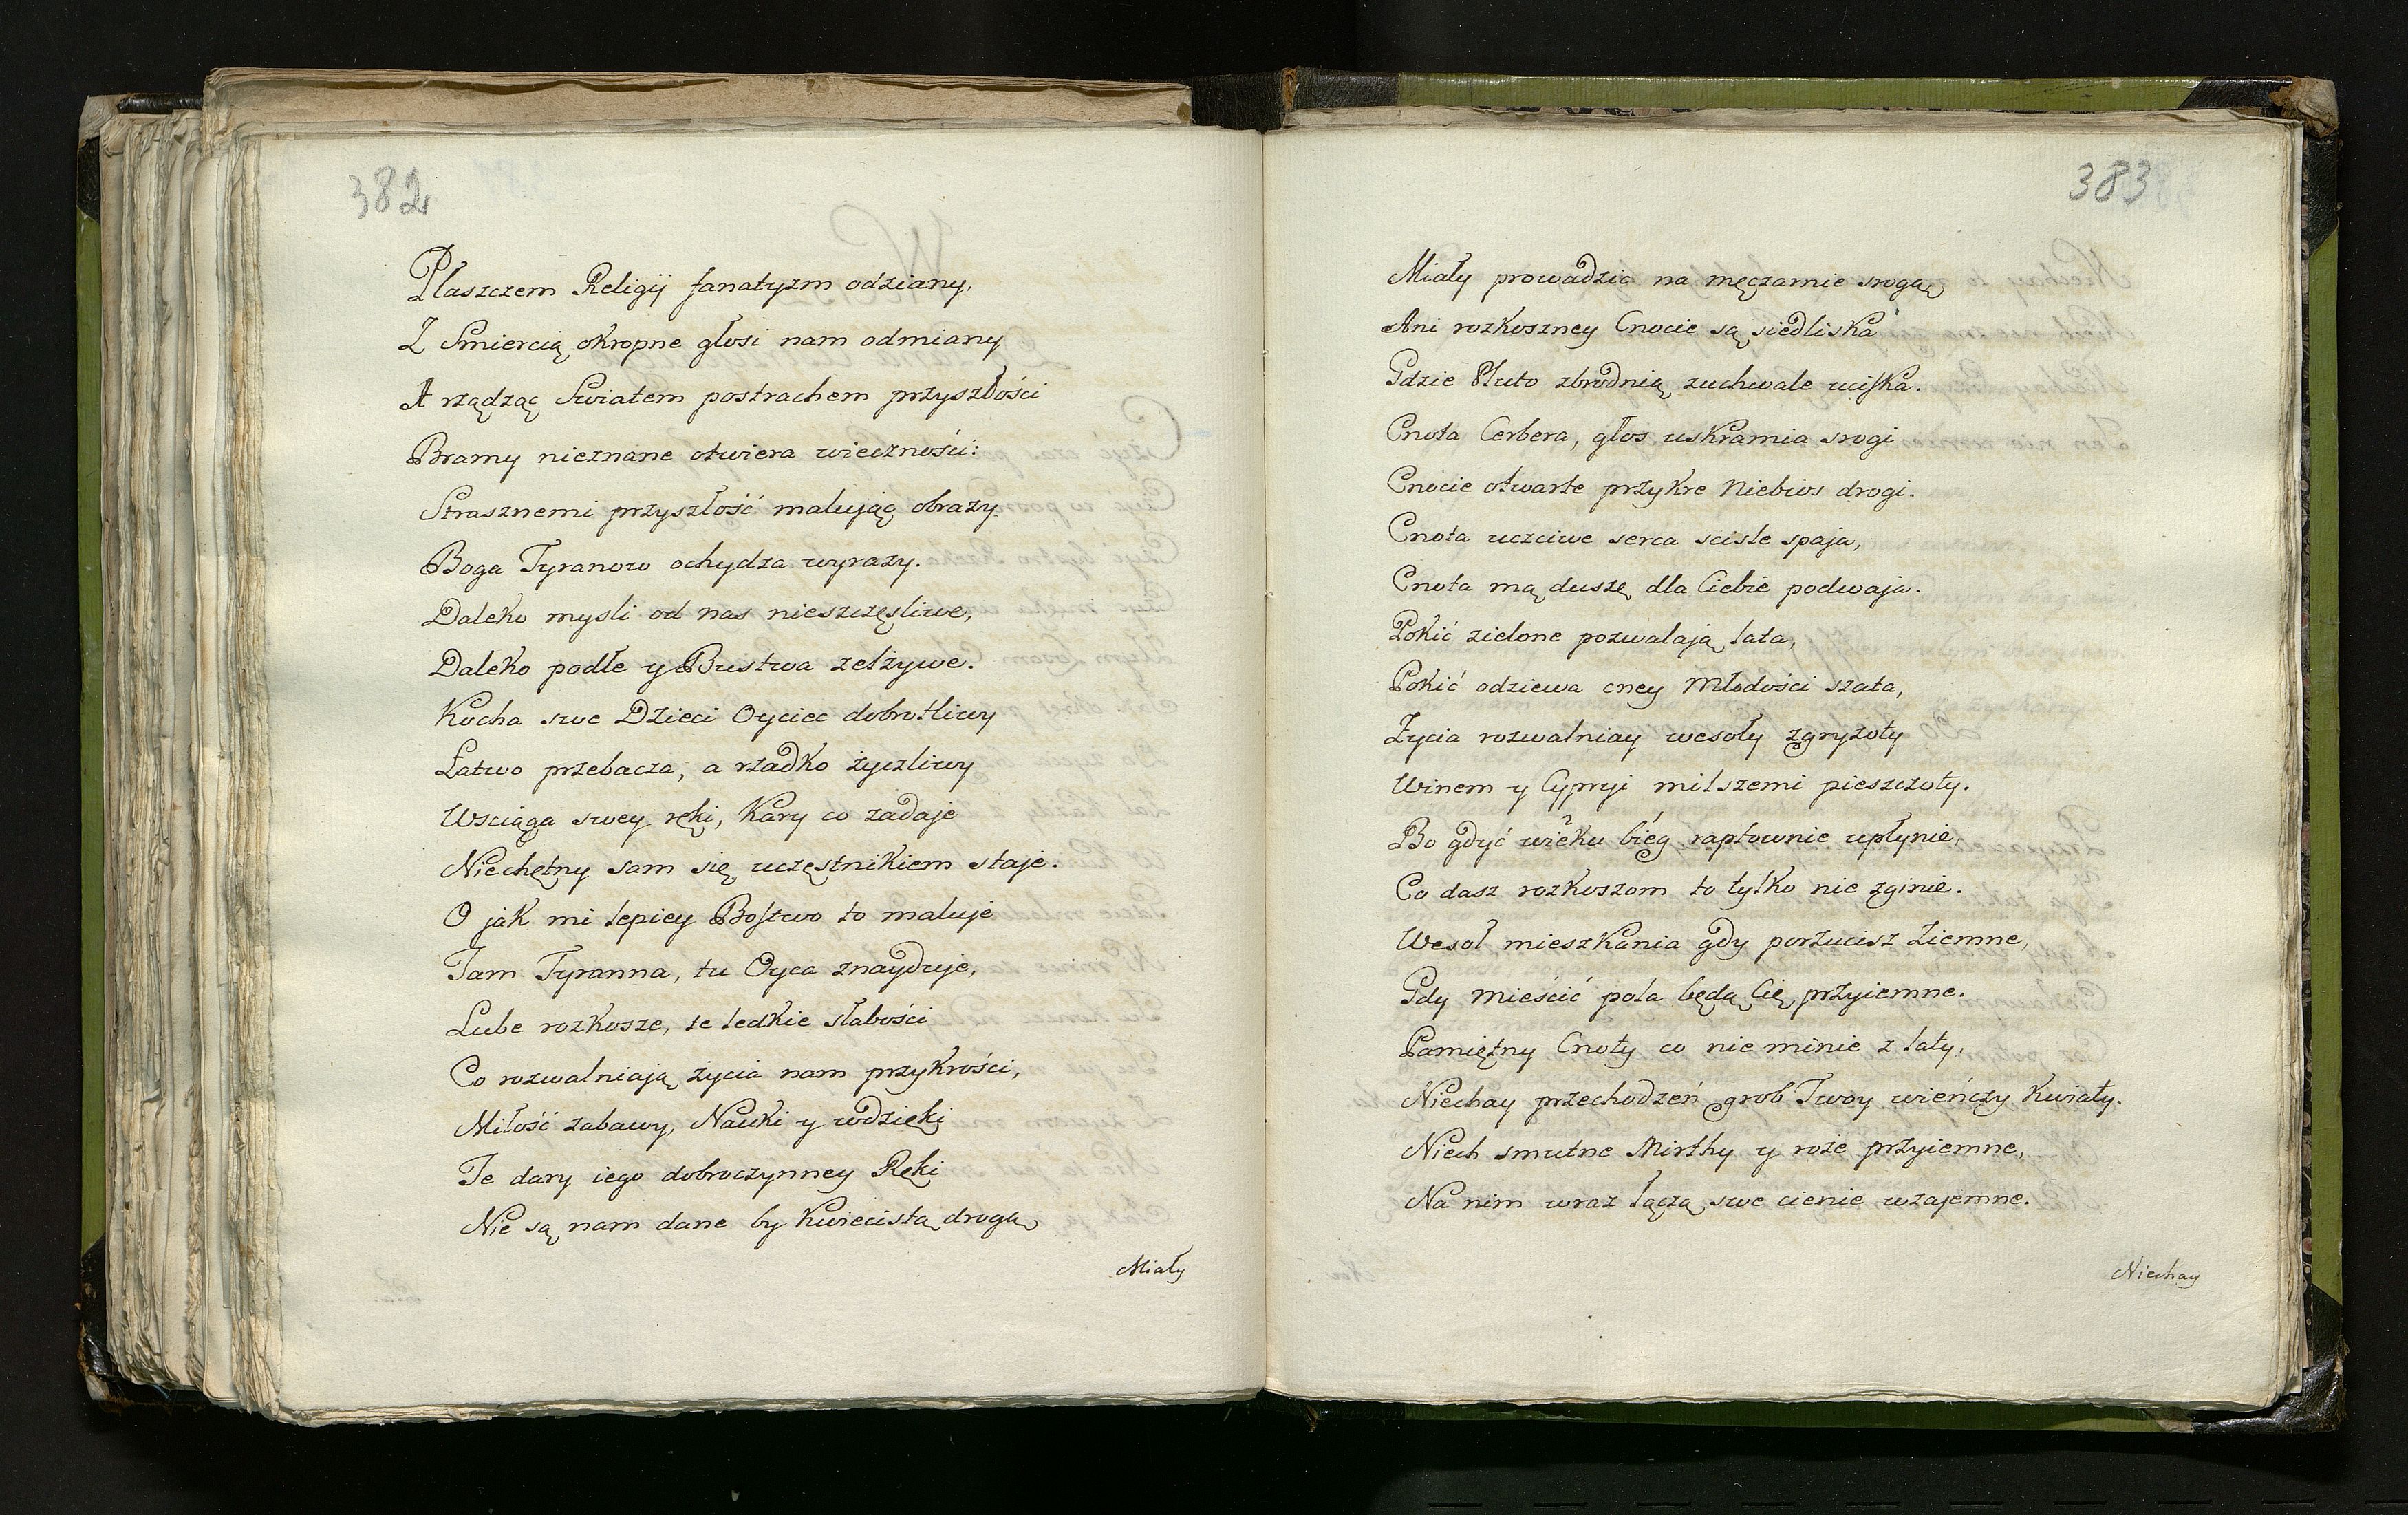 382
Płaszczem Religij fanatyzm odziany,
Z Smiercią okropne głosi nam odmiany
A rządząc Swiatem postrachem przyszłości
Bramy nieznane otwiera wieczności:
Strasznemi przyszłość malując obrazy
Boga Tyranow ochydza wyrazy.
Daleko mysli od nas nieszczęsliwe,
Daleko podłe y Bustwa zelżywe.
Kocha swe Dzieci Oyciec dobrotliwy
Łatwo przebacza, a rzadko życzliwy
Wsciąga swey ręki, Kary co zadaje
Niechętny sam się uczęstnikiem staje.
O jak mi lepiey Bostwo to maluje
Tam Tyranna, tu Oyca znayduje,
Lube rozkosze, te ledkie słabości
Co rozwalniają życia nam przykrości,
Miłość zabawy, Nauki y wdzięki
Te dary iego dobroczynney Ręki
Nie są nam dane by Kwiecistą drogą
Miały
383
Miały prowadzic na męczarnie srogą
Ani rozkoszney Cnocie są siedliska
Gdzie Pluto zbrodnią zuchwale uciska.
Cnota Cerbera, głos uskramia srogi
Cnocie otwarte przykre Niebios drogi.
Cnota uczciwe serca scisle spaja,
Cnota mą duszę dla Ciebie podwaja.
Pokić zielone pozwalają lata,
Pokić odziewa cney Młodości szata,
Życia rozwalniay wesoły zgryzoty
Winem y Cypryi milszemi pieszczoty.
Bo gdyć wieku bieg raptownie upłynie,
Co dasz rozkoszom to tylko nie zginie.
Wesoł mieszkania gdy porzucisz Ziemne,
Gdy mieścić pola będą Cię przyiemne.
Pamiętny Cnoty co nie minie z laty,
Niechay przechodzeń grob Twoy wieńczy Kwiaty.
Niech smutne Mirthy y roże przyiemne,
Na nim wraz łączą swe cienie wzajemne.
Niechay